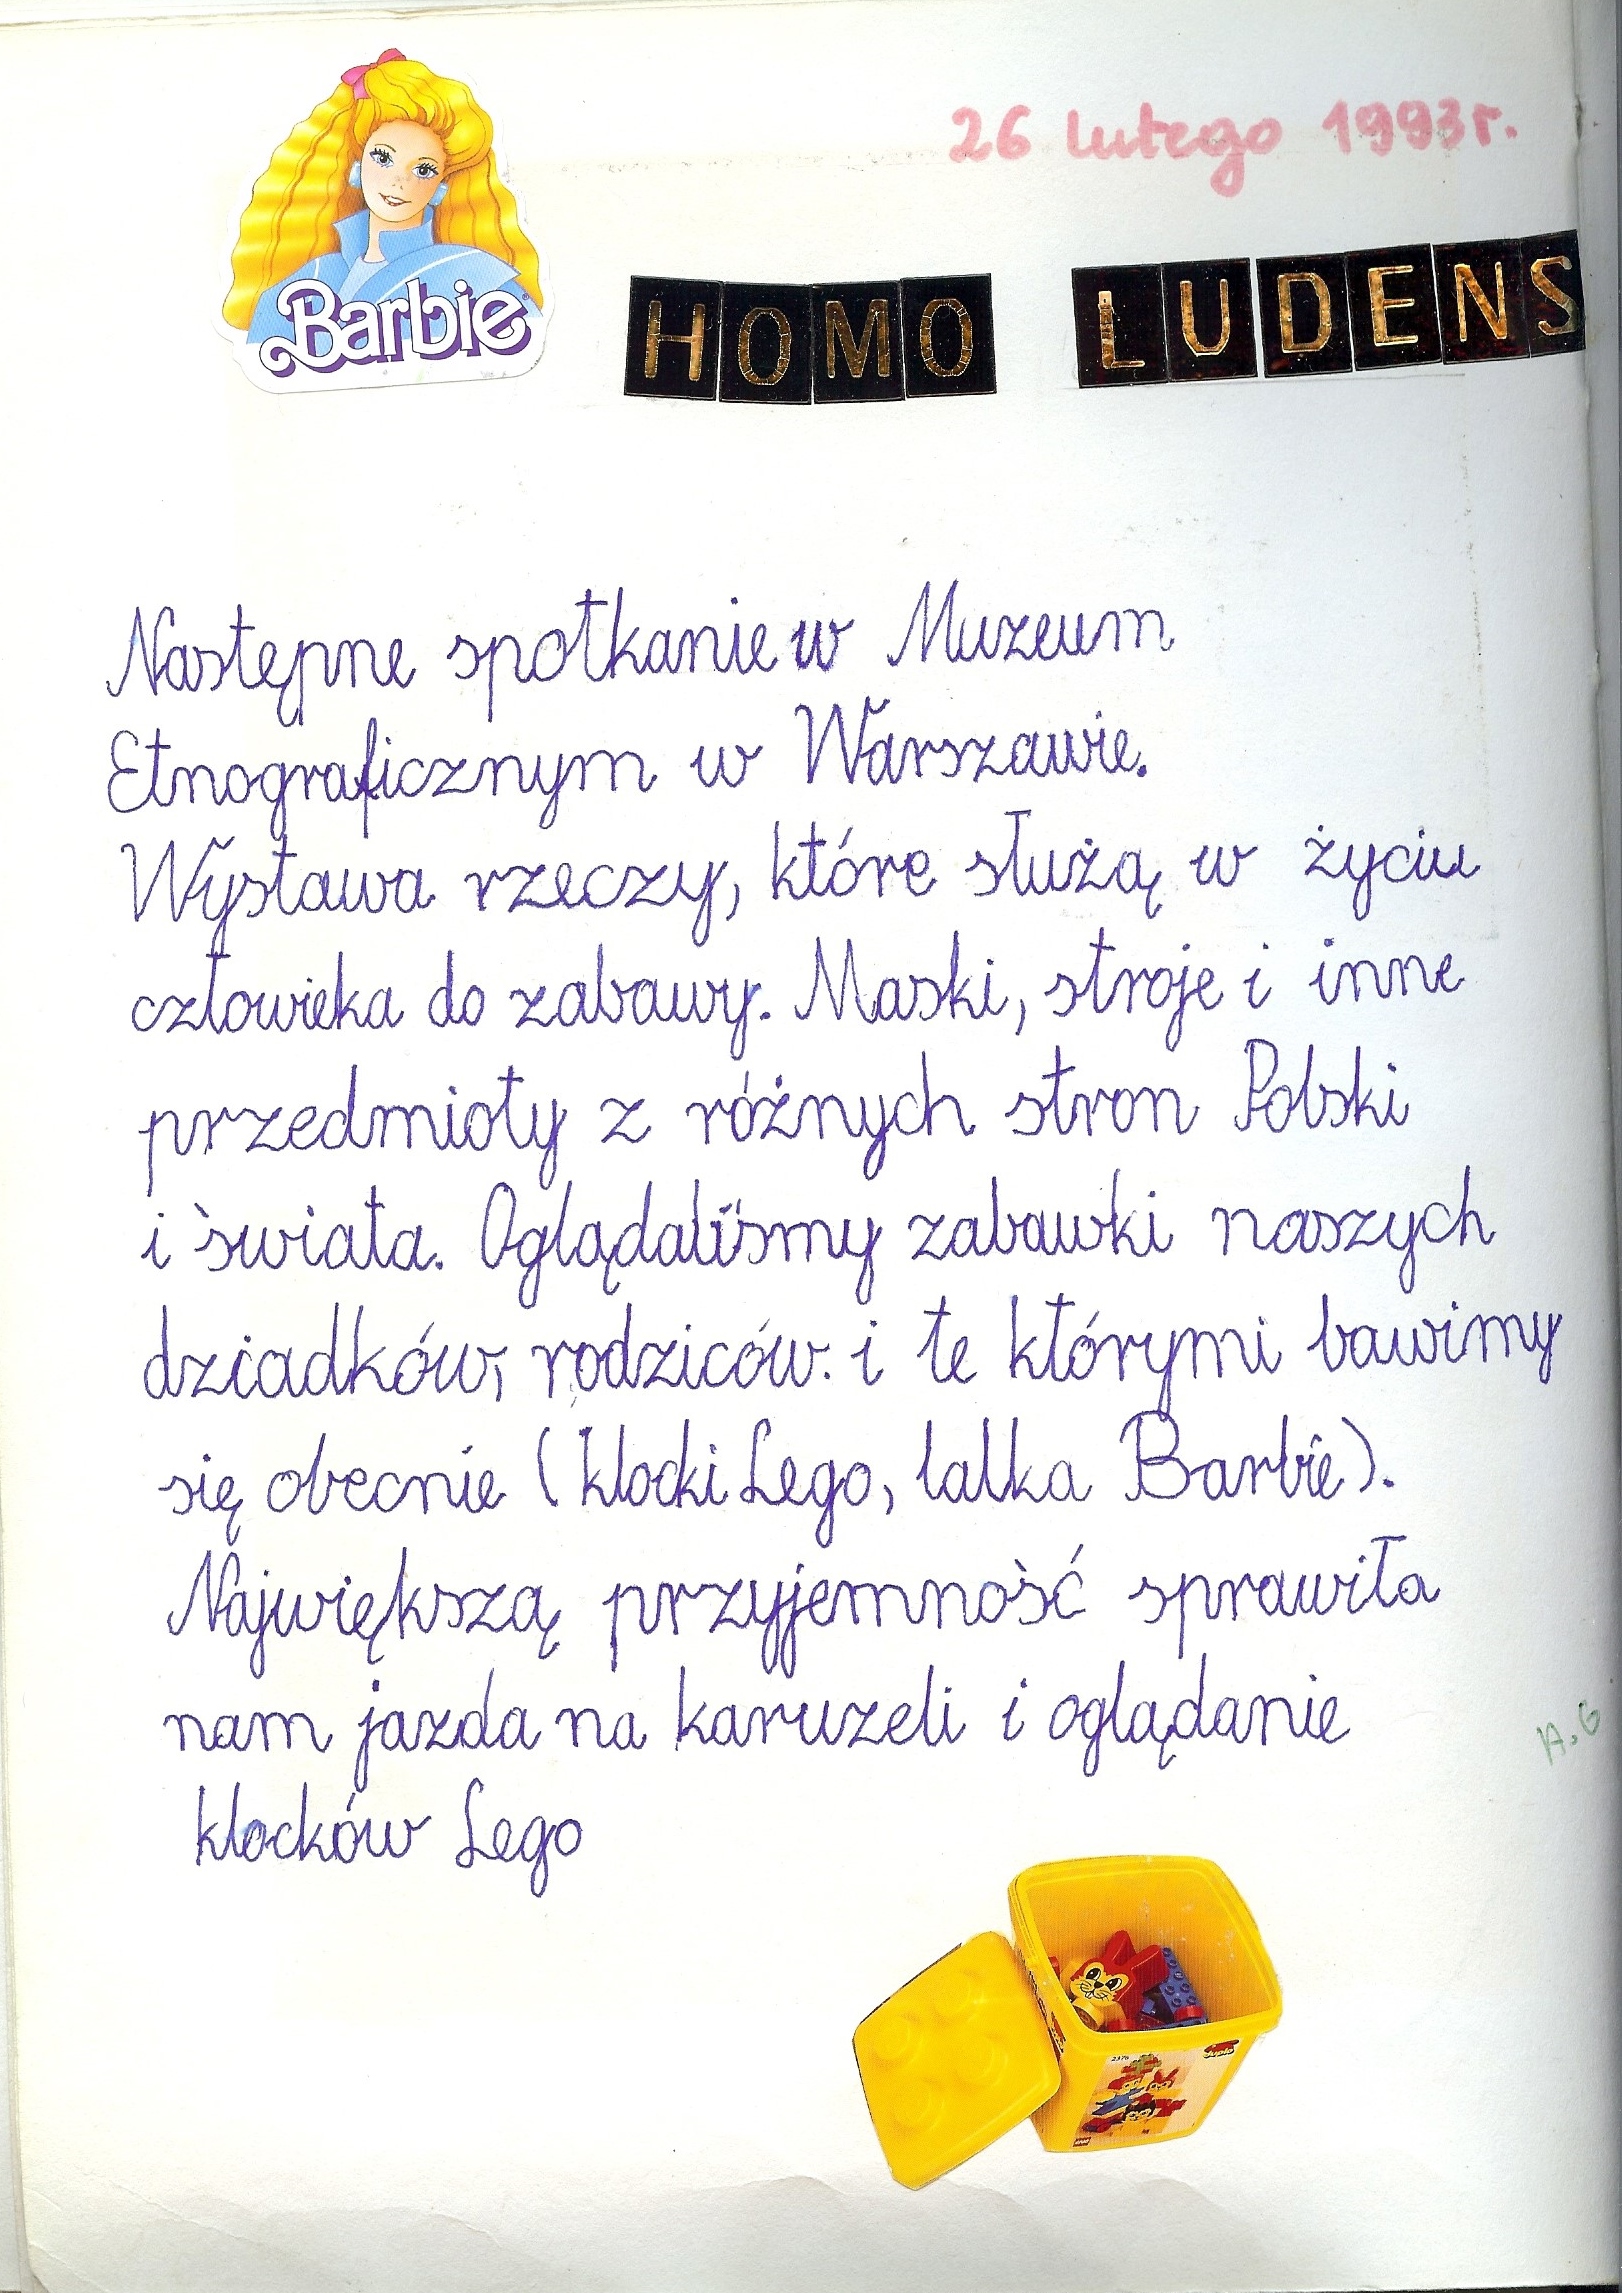 26 lutego 1993r.
Barbie
HOMO LUDENS
Następne spotkanie w Muzeum
Etnograficznym w Warszawie.
Wystawa rzeczy, które służą w życiu
człowieka do zabawy. Maski, stroje i inne
przedmioty z różnych stron Polski
i świata. Oglądaliśmy zabawki naszych
dziadków, rodziców. i te którymi bawimy
się obecnie (klocki Lego, lalka Barbie).
Największą przyjemność sprawiła
nam jazda na karuzeli i oglądanie
klocków Lego
A.G
2376
duplo